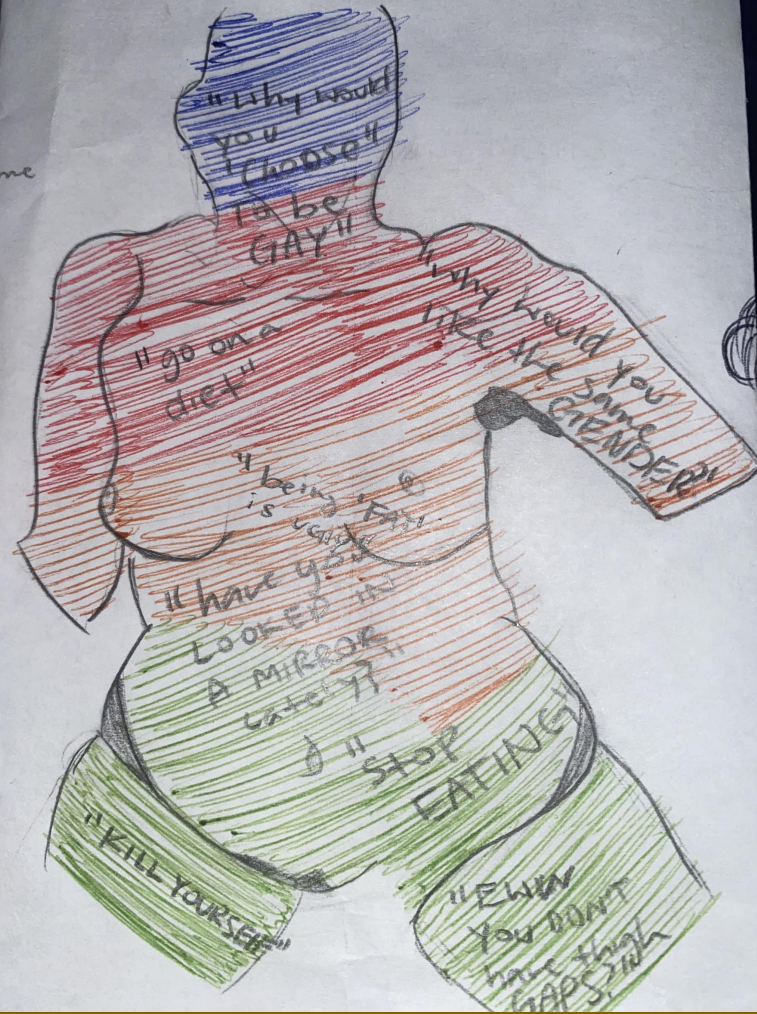 me
"Why would
you
"CHOOSE"
To be
GAY"
"Why would you
like the same
GENDER?"
"go on a
diet"
"being 'FAT'
is ugly"
"have you
LOOKED IN
A MIRROR
Lately?"
"STOP
EATING"
"KILL YOURSELF"
"EWW
YOU DON'T
have thigh
GAPS?"